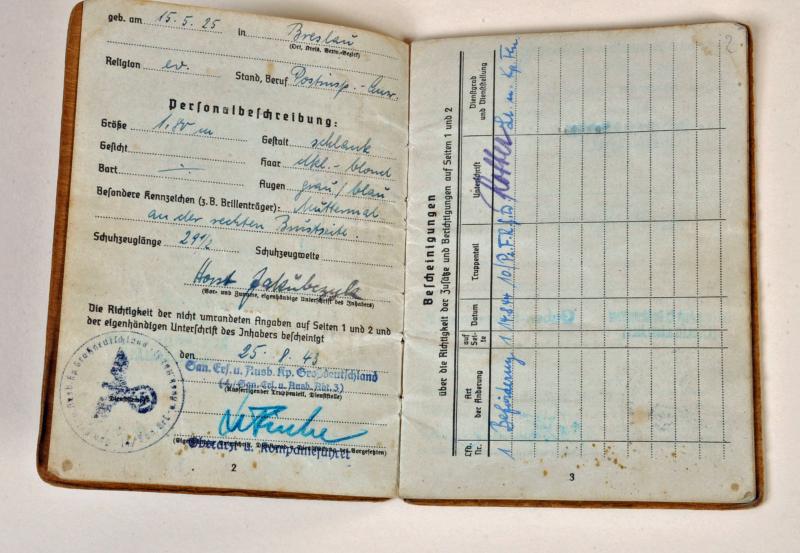 geb. am 15. 5. 25 in Breslau
(Ort, Kreis, Verw.-Bezirk)
Religion ev. Stand, Beruf Postinsp.-Anw.
Personalbeschreibung:
Größe 1,80 m Gestalt schlank
Gesicht Haar dkl.-blond
Bart ÷ Augen grau/blau
Besondere Kennzeichen (z.B. Brillenträger): Muttermal
an der rechten Brustseite.
Schuhzeuglänge 29½ Schuhzeugweite
Horst Jakubczyk
(Vor- und Zuname, eigenhändige Unterschrift des Inhabers)
Die Richtigkeit der nicht umrandeten Angaben auf Seiten 1 und 2 und
der eigenhändigen Unterschrift des Inhabers bescheinigt
den 25. 8. 43
San. Ers. u. Ausb. Kp. Großdeutschland
(4./San. Ers. u. Ausb. Abt. 3)
(Ausfertigender Truppenteil, Dienststelle)
Oberarzt u. Kompanieführer
2
2.
Bescheinigungen
über die Richtigkeit der Zusätze und Berichtigungen auf Seiten 1 und 2
Lfd. Nr. Art der Änderung auf Seite Datum Truppenteil Unterschrift Dienstgrad und Dienststellung
1 Beförderung 1 Lt. u. Kp. Fhr.
3